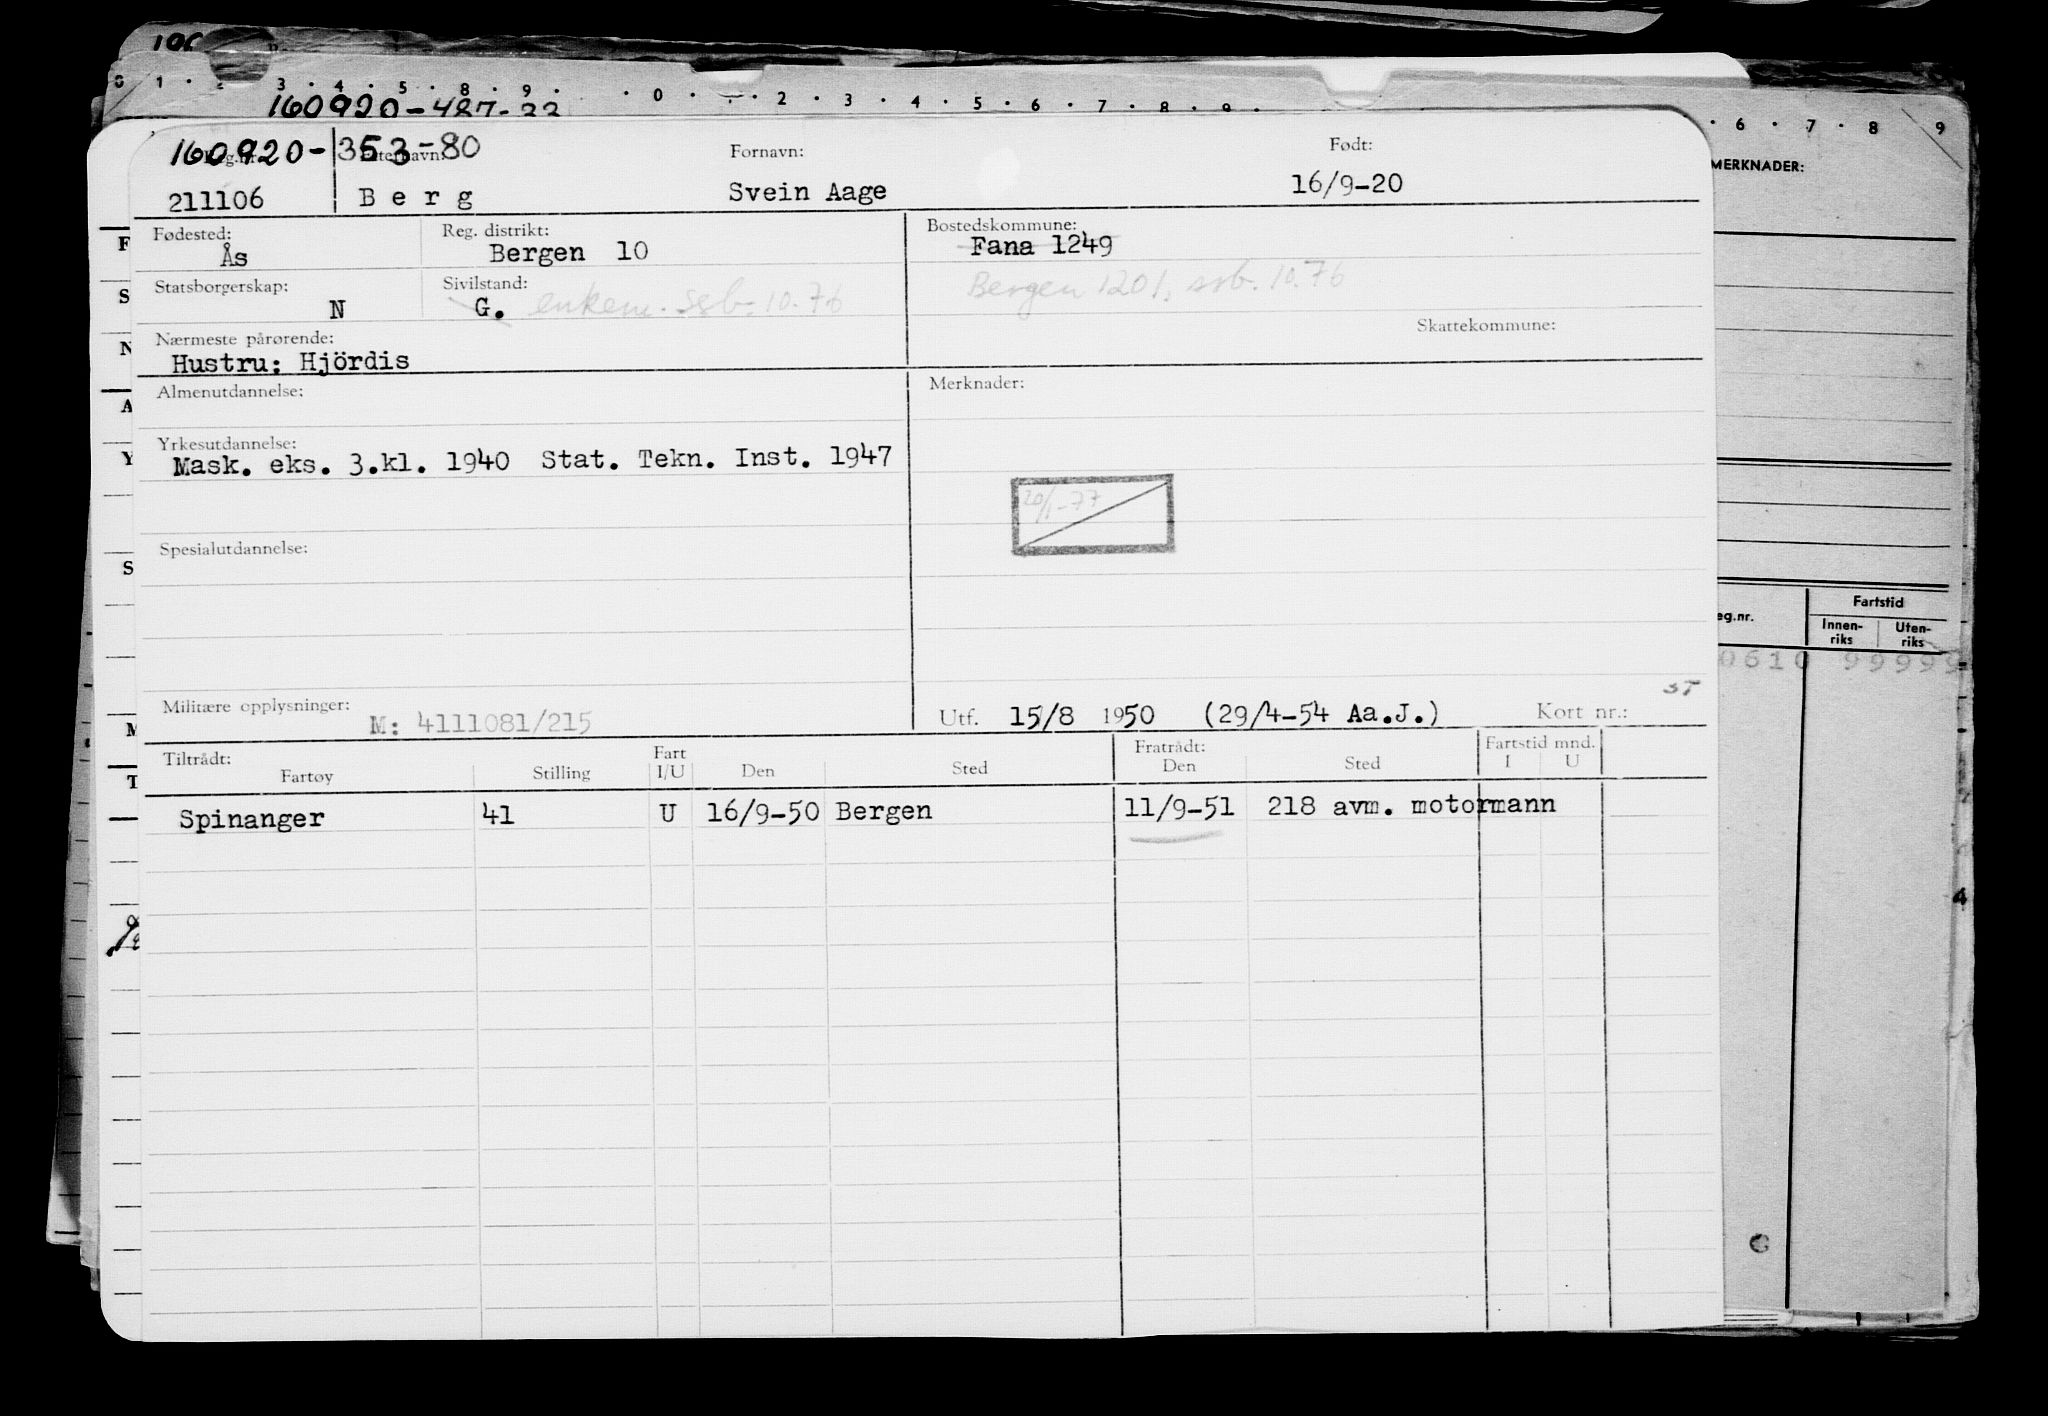 0 1 · 2 3 · 4 · 5 · 8 · 9 · · 0 · · 2 · 3 · 4 · 5 · 6 · 7 · 8 · 9 ·
160920-487-33
· 6 · 7 · 8 9
MERKNADER:
160920-353-80
Fornavn:
Født:
211106
Berg
Svein Aage
16/9-20
Fødested:
Reg. distrikt:
Bostedskommune:
Ås
Bergen 10
Fana 1249
Statsborgerskap:
Sivilstand:
Bergen 1201, ssb. 10.76
N
G. enkem. ssb. 10.76
Nærmeste pårørende:
Skattekommune:
Hustru: Hjördis
Almenutdannelse:
Merknader:
Yrkesutdannelse:
Mask. eks. 3.kl. 1940 Stat. Tekn. Inst. 1947
20/1-77
Spesialutdannelse:
eg.nr.
Fartstid
Innen-
riks
Uten-
riks
0610 99999
ST
Militære opplysninger:
M: 4111081/215
Utf. 15/8 1950 (29/4-54 Aa.J.)
Kort nr.:
Tiltrådt:
Fart
Fratrådt:
Fartstid mnd.
Fartøy
Stilling
I/U
Den
Sted
Den
Sted
I
U
Spinanger
41
U
16/9-50
Bergen
11/9-51
218 avm. motormann